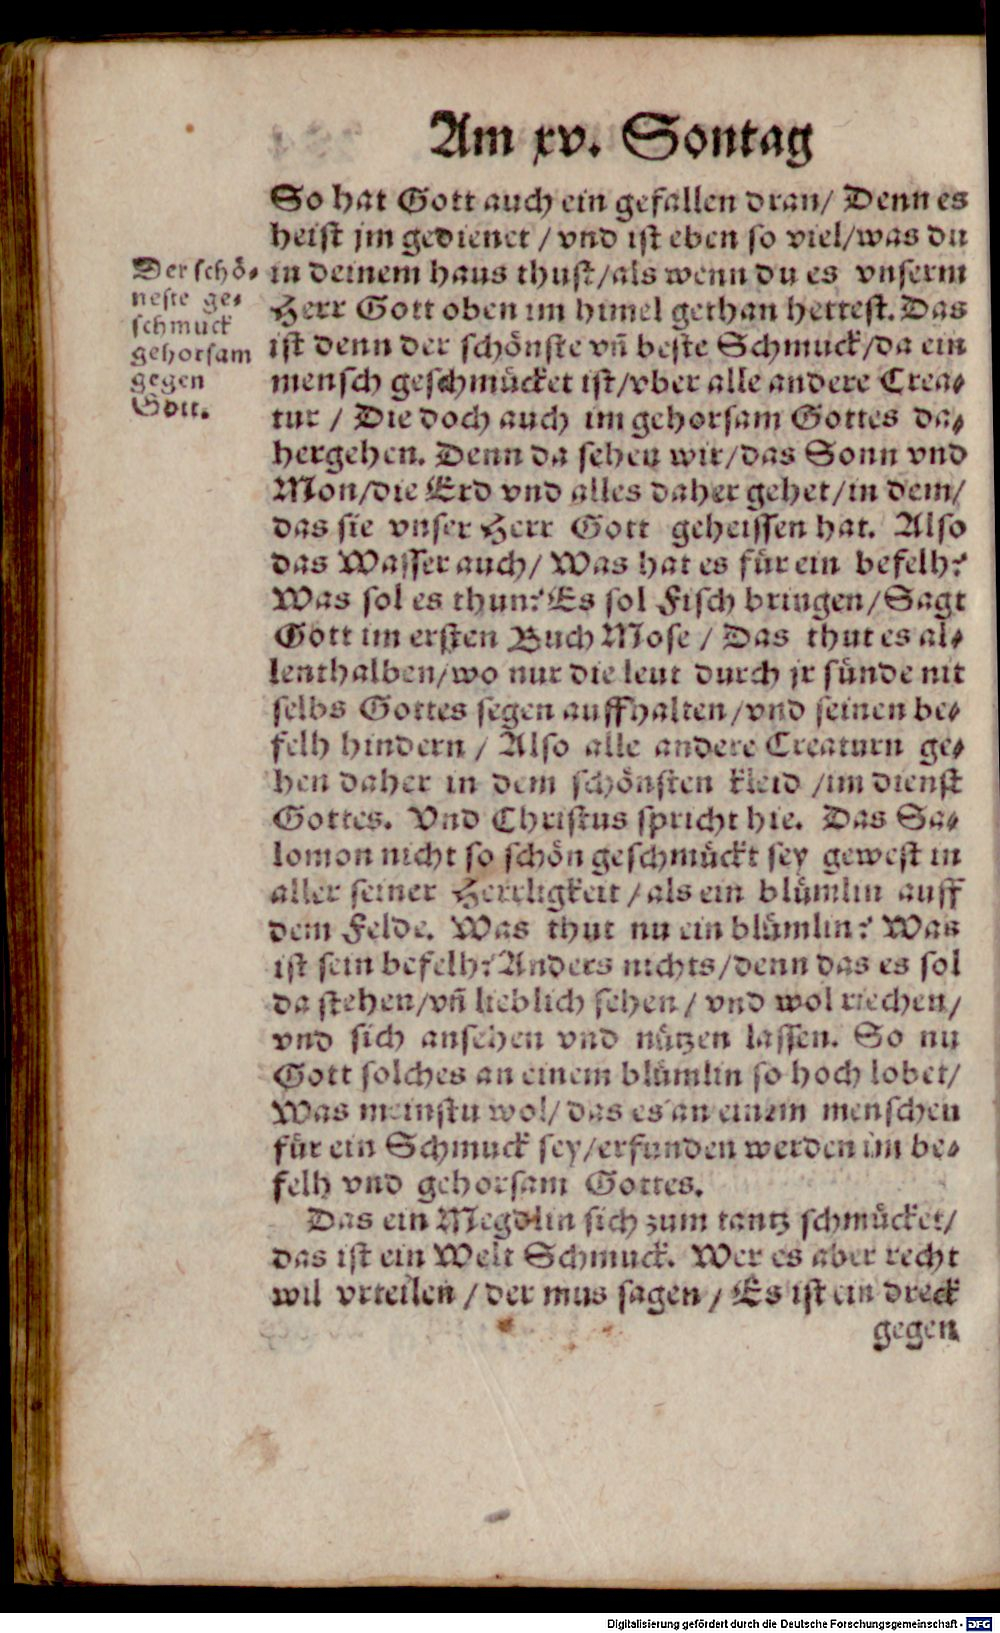 Am xv. Sontag
So hat Gott auch ein gefallen dran/ Denn es
heist jm gedienet / vnd ist eben so viel/was du
in deinem haus thust/als wenn du es vnserm
Herr Gott oben im himel gethan hettest. Das
ist denn der schönste vñ beste Schmuck/da ein
mensch geschmücket ist/vber alle andere Crea-
tur / Die doch auch im gehorsam Gottes da-
hergehen. Denn da sehen wir/das Sonn vnd
Mon/die Erd vnd alles daher gehet/in dem/
das sie vnser Herr Gott geheissen hat. Also
das Wasser auch/ Was hat es für ein befelh?
Was sol es thun? Es sol Fisch bringen/Sagt
Gott im ersten Buch Mose / Das thut es al-
lenthalben/wo nur die leut durch jr sünde nit
selbs Gottes segen auffhalten/vnd seinen be-
felh hindern / Also alle andere Creaturn ge-
hen daher in dem schönsten kleid /im dienst
Gottes. Vnd Christus spricht hie. Das Sa-
lomon nicht so schön geschmückt sey gewest in
aller seiner Herrligkeit / als ein blümlin auff
dem Felde. Was thut nu ein blümlin? Was
ist sein befelh? Anders nichts/denn das es sol
da stehen/vñ lieblich sehen / vnd wol riechen/
vnd sich ansehen vnd nützen lassen. So nu
Gott solches an einem blümlin so hoch lobet/
Was meinstu wol/ das es an einem menschen
für ein Schmuck sey/erfunden werden im be-
felh vnd gehorsam Gottes.
Das ein Megdlin sich zum tantz schmücket/
das ist ein Welt Schmuck. Wer es aber recht
wil vrteilen / der mus sagen / Es ist ein dreck
gegen
Der schö-
neste ge-
schmuck
gehorsam
gegen
Gott.
Digitalisierung gefördert durch die Deutsche Forschungsgemeinschaft - DFG